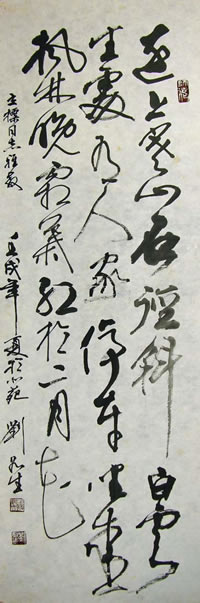 远上寒山石徑斜白雲
生處有人家停車坐愛
楓林晚霜葉紅於二月花
同志雅教
壬戌年夏於 劉 生